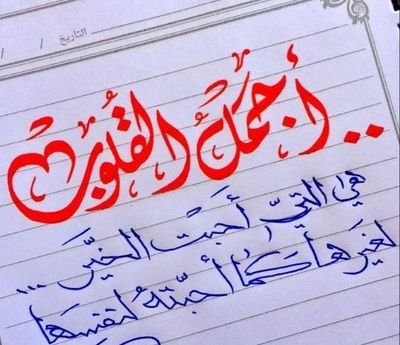 التاريخ / /
.. أجمل القلوب
هي التي أحبت الخير ...
لغيرها كما أحبته لنفسها